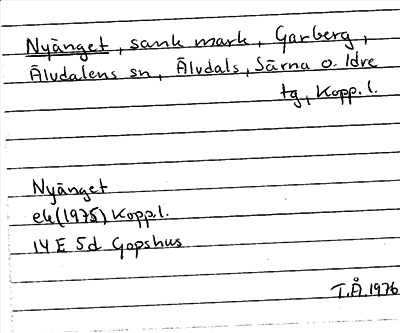 Nyänget, sank mark, Garberg,
Älvdalens sn, Älvdals, Särna o. Idre
tg, Kopp. l.
Nyänget
ek (1975) Kopp.l.
14 E 5d Gopshus
T.Å. 1976